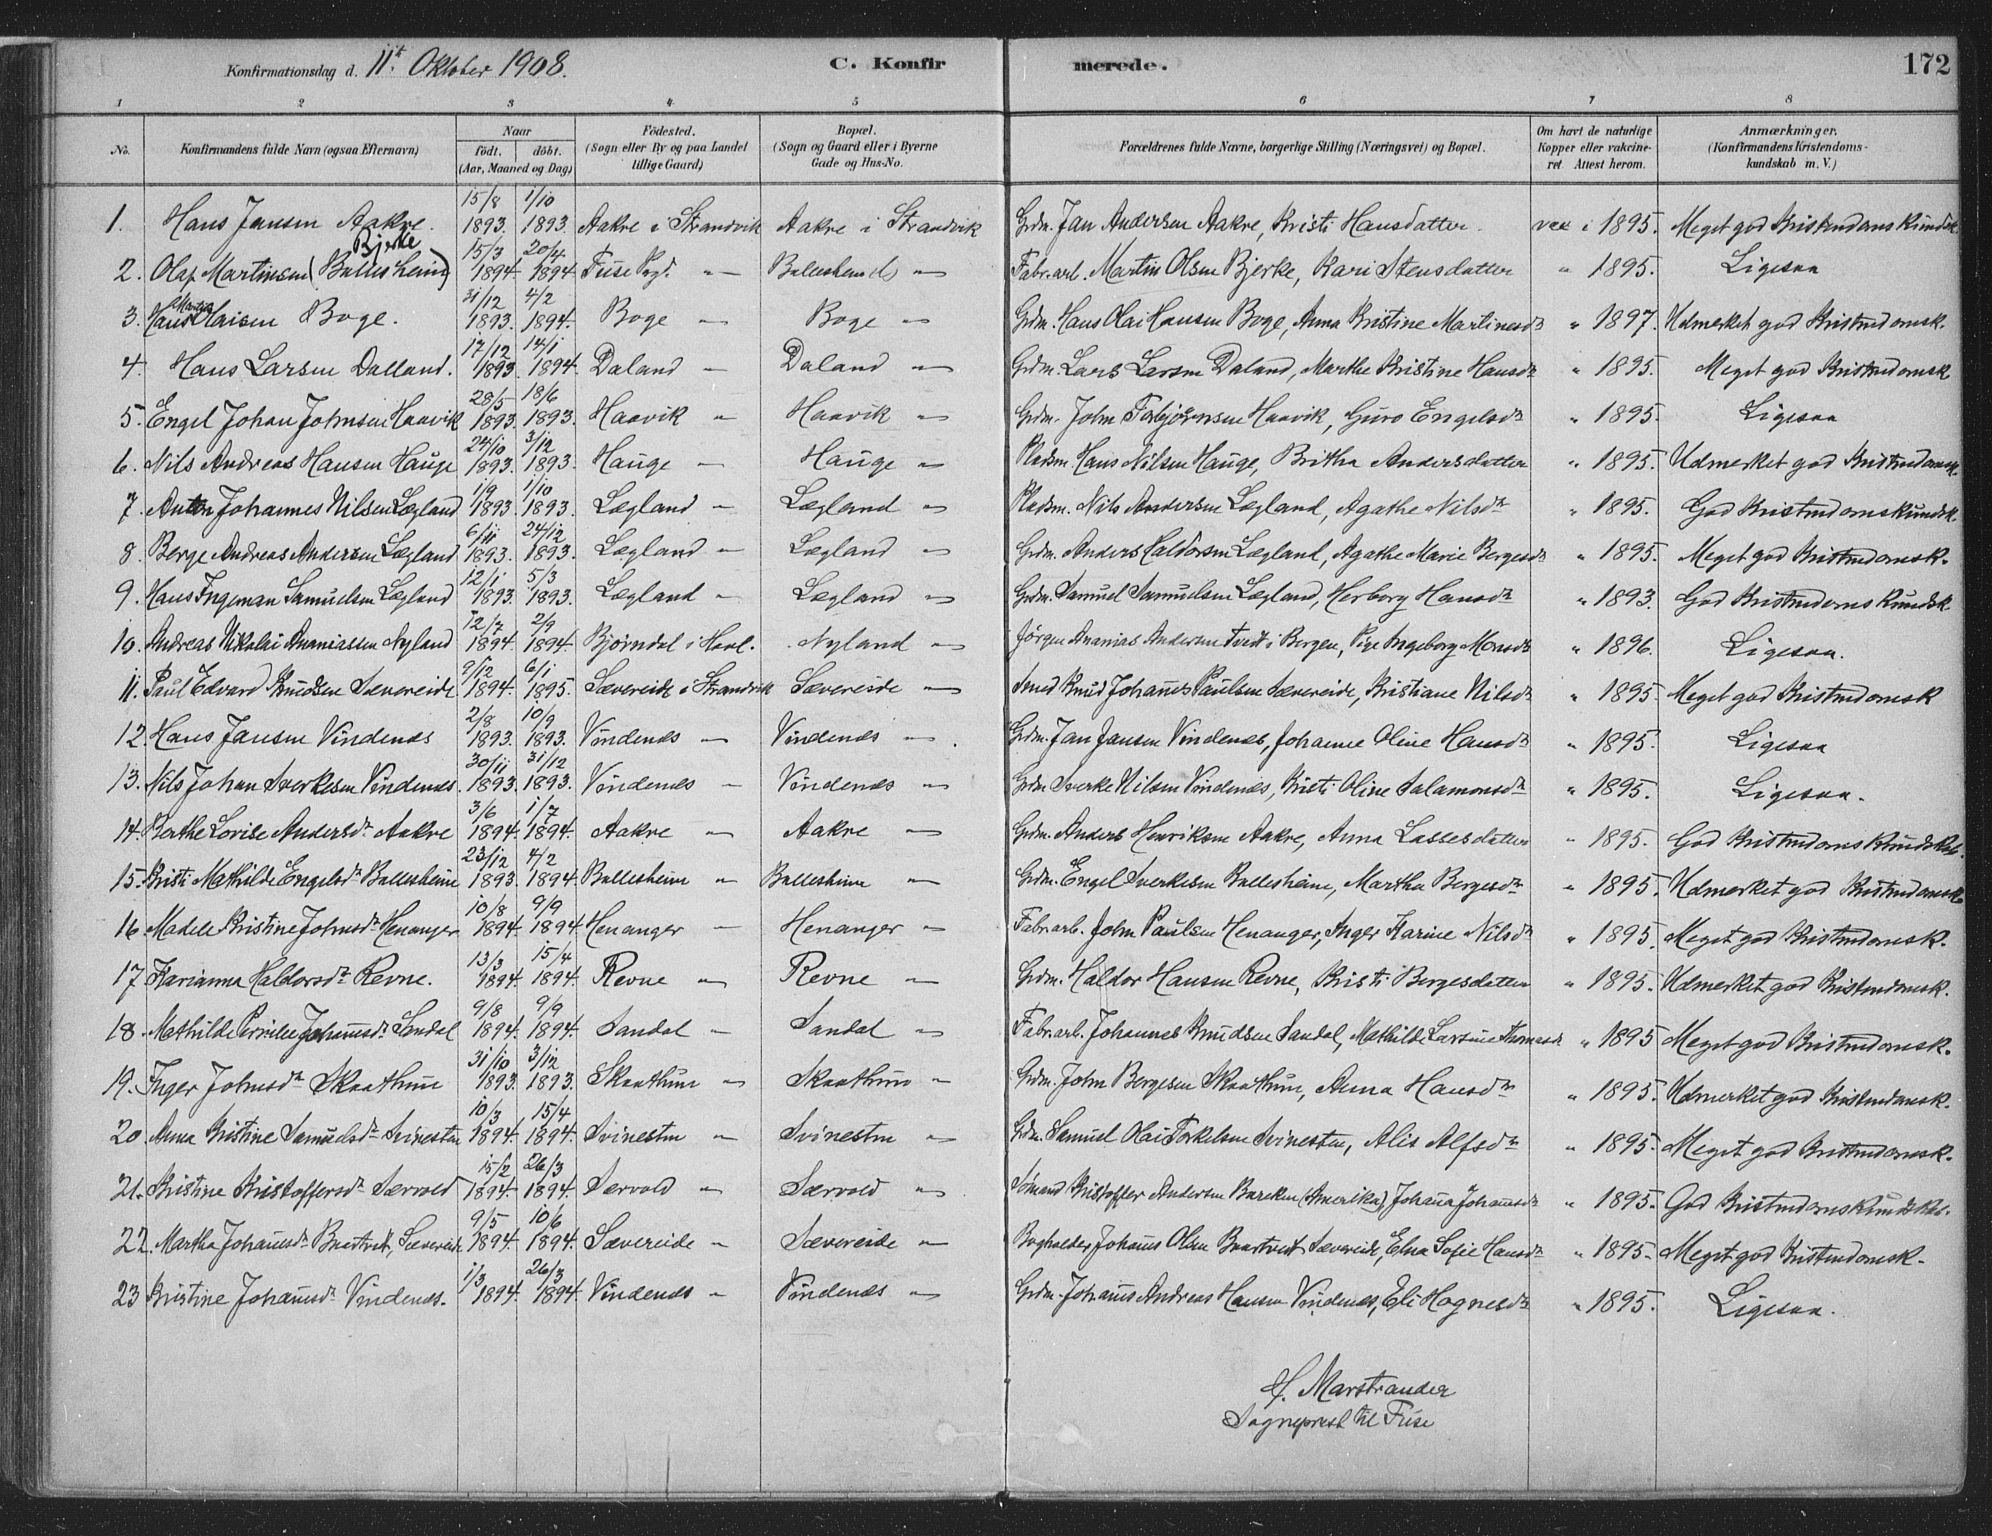 Konfirmationsdag d. 11t Oktober 1908. C. Konfirmerede. 172
1 2 3 4 5 6 7 8
No. Konfirmandens fulde Navn (ogsaa Efternavn) Naar födt. döbt. (Aar, Maaned og Dag) Födested. (Sogn eller By og paa Landet tillige Gaard) Bopæl. (Sogn og Gaard eller i Byerne Gade og Hus-No. Forældrenes fulde Navne, borgerlige Stilling (Næringsvei) og Bopæl. Om havt de naturlige Kopper eller vakcineret Attest herom. Anmærkninger. (Konfirmandens Kristendomskundskab m. V.)
1. Hans Jansen Aakre. 15/8 1893. 1/10 1893. Aakre i Strandvik Aakre i Strandvik Grdm. Jan Andersen Aakre, Kristi Hansdatter. vac i 1895. Meget god Kristendomskundsk.
2. Olaf Martinsen (Ballesheim) Bjerke 15/3 1894 20/4 1894 Fuse Pgd. " Ballesheim " Fabr. arb. Martin Olsen Bjerke, Kari Stensdatter " 1895. Ligesaa
3. Hans Martin Olaisen Boge. 31/12 1893. 4/2 1894. Boge " Boge " Grdm. Hans Olai Hansen Boge, Anna Kristine Martinsdr " 1897. Udmerket god Kristendomsk.
4. Hans Larsen Dalland. 17/12 1893 14/1 1894. Daland " Daland " Grdm. Lars Larsen Daland, Marthe Kristine Hansdr " 1895. Meget god Kristendomsk
5. Engel Johan Johnsen Haavik 28/5 1893. 18/6 1893. Haavik " Haavik " Grdm. John Torbjörnsen Haavik, Guro Engelsdr " 1895. Ligesaa
6. Nils Andreas Hansen Hauge 24/10 1893. 3/12 1893. Hauge " Hauge " Pladsm. Hans Nilsen Hauge, Britha Andersdatter " 1895. Udmerket god Kristendomsk.
7. Anton Johannes Nilsen Lægland 1/9 1893 1/10 1893. Lægland " Lægland " Pladsm. Nils Andersen Lægland, Agathe Nilsdr " 1895. God Kristendomskundsk.
8. Berge Andreas Andersen Lægland 6/11 1893. 24/12 1893. Lægland " Lægland " Grdm. Anders Haldorsen Lægland, Agathe Marie Bergesdr " 1895. Meget god Kristendomsk.
9. Hans Ingeman Samuelsen Lægland 12/1 1893. 5/3 1893. Lægland " Lægland " Grdm. Samuel Samuelsen Lægland, Herborg Hansdr " 1893. God Kristendomskundsk
10. Andreas Nikolai Ananiassen Nyland 12/7 1894. 2/9 1894. Bjørndal i Haal. Nyland " Jörgen Ananias Andersen Tvedt i Bergen, Pige Ingeborg Monsdr " 1896. Ligesaa.
11. Paul Edvard Knudsen Sævereide 9/12 1894. 6/1 1895. Sævereide i Strandvik Sævereide " Smed Knud Johannes Paulsen Sævereide, Kristiane Nilsdr " 1895 Meget god Kristendomsk
12. Hans Jansen Vindenes 2/8 1893. 10/9 1893. Vindenes " Vindenes " Grdm. Jan Jansen Vindenes, Johanne Oline Hansdr " 1895. Ligesaa
13. Nils Johan Sverkesen Vindenes. 30/11 1893. 31/12 1893. Vindenes " Vindenes " Grdm Sverke Nilsen Vindenes, Kristi Oline Salamonsdr " 1895. Ligesaa.
14. Berthe Lovise Andersdr Aakre 3/6 1894. 1/7 1894. Aakre " Aakre " Grdm. Anders Henriksen Aakre, Anna Lassesdatter " 1895. God Kristendomskundskab.
15. Kristi Mathilde Engelsdr Ballesheim 23/12 1893. 4/2 1894. Ballesheim " Ballesheim " Grdm. Engel Sverkesen Ballesheim, Martha Bergesdr " 1895. Udmerket god Kristendomsk.
16. Madele Kristine Johnsdr Henanger 10/8 1894. 9/9 1894. Henanger " Henanger " Fabr. arb. John Paulsen Henanger, Inger Karine Nilsdr " 1895. Meget god Kristendomsk.
17. Karianna Haldorsdr Revne. 13/3 1894. 15/4 1894. Revne " Revne " Grdm. Haldor Hansen Revne, Kristi Bergesdatter " 1895. Udmerket god Kristendomsk.
18. Mathilde Pernille Johannesdr Sandal 9/8 1894. 9/9 1894. Sandal " Sandal " Fabr. arb. Johannes Knudsen Sandal, Mathilde Larsine Thomasdr " 1895 Meget god Kristendomsk.
19. Inger Johnsdr Skaathun 31/10 1893. 3/12 1893. Skaathun " Skaathun " Grdm. John Bergesen Skaathun, Anna Hansdr " 1895. Udmerket god Kristendomsk.
20. Anna Kristine Samuelsdr Svinesten 10/3 1894. 15/4 1894. Svinesten " Svinesten " Grdm. Samuel Olai Torkelsen Svinesten, Alis Alfsdr " 1895. Meget god Kristendomsk.
21. Kristine Kristoffersdr Særvold 15/2 1894. 26/3 1894. Særvold " Særvold " Sömand Kristoffer Andersen (Amerika), Johanna Johannesdr " 1895. God Kristendomskundskab.
22. Martha Johannesdr Baartveit, Sævereide 9/5 1894. 10/6 1894. Sævereide " Sævereide " Bogholder Johannes Olsen Baartveit Sævereide, Elna Sofie Hansdr " 1895. Meget god Kristendomsk.
23 Kristine Johannesdr Vindenes. 1/3 1894. 26/3 1894. Vindenes " Vindenes " Grdm. Johannes Andreas Hansen Vindenes, Eli Hognesdr " 1895. Ligesaa.
H. Marstrander
Sogneprest til Fuse